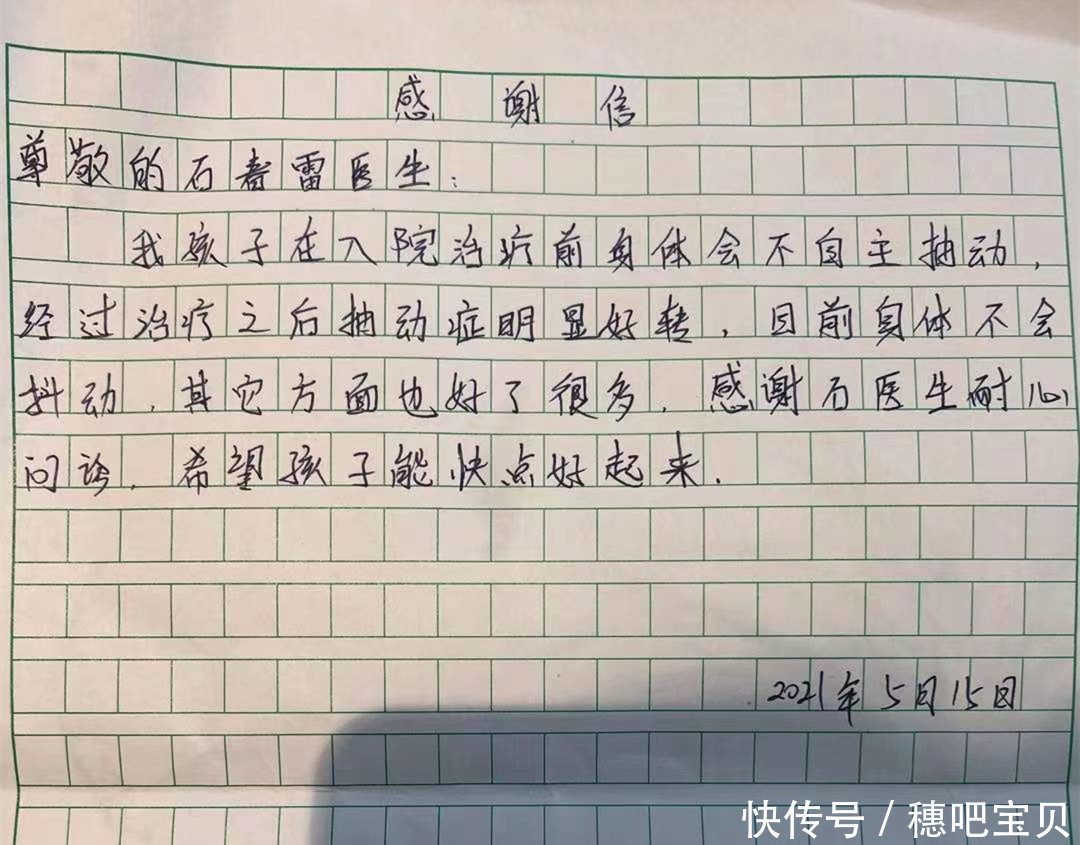 感谢信
尊敬的石春雷医生：
我孩子在入院治疗前身体会不自主抽动，
经过治疗之后抽动症明显好转，目前身体不会
抖动，其它方面也好了很多，感谢石医生耐心
问诊，希望孩子能快点好起来．
2021年5月15日
快传号 / 穗吧宝贝